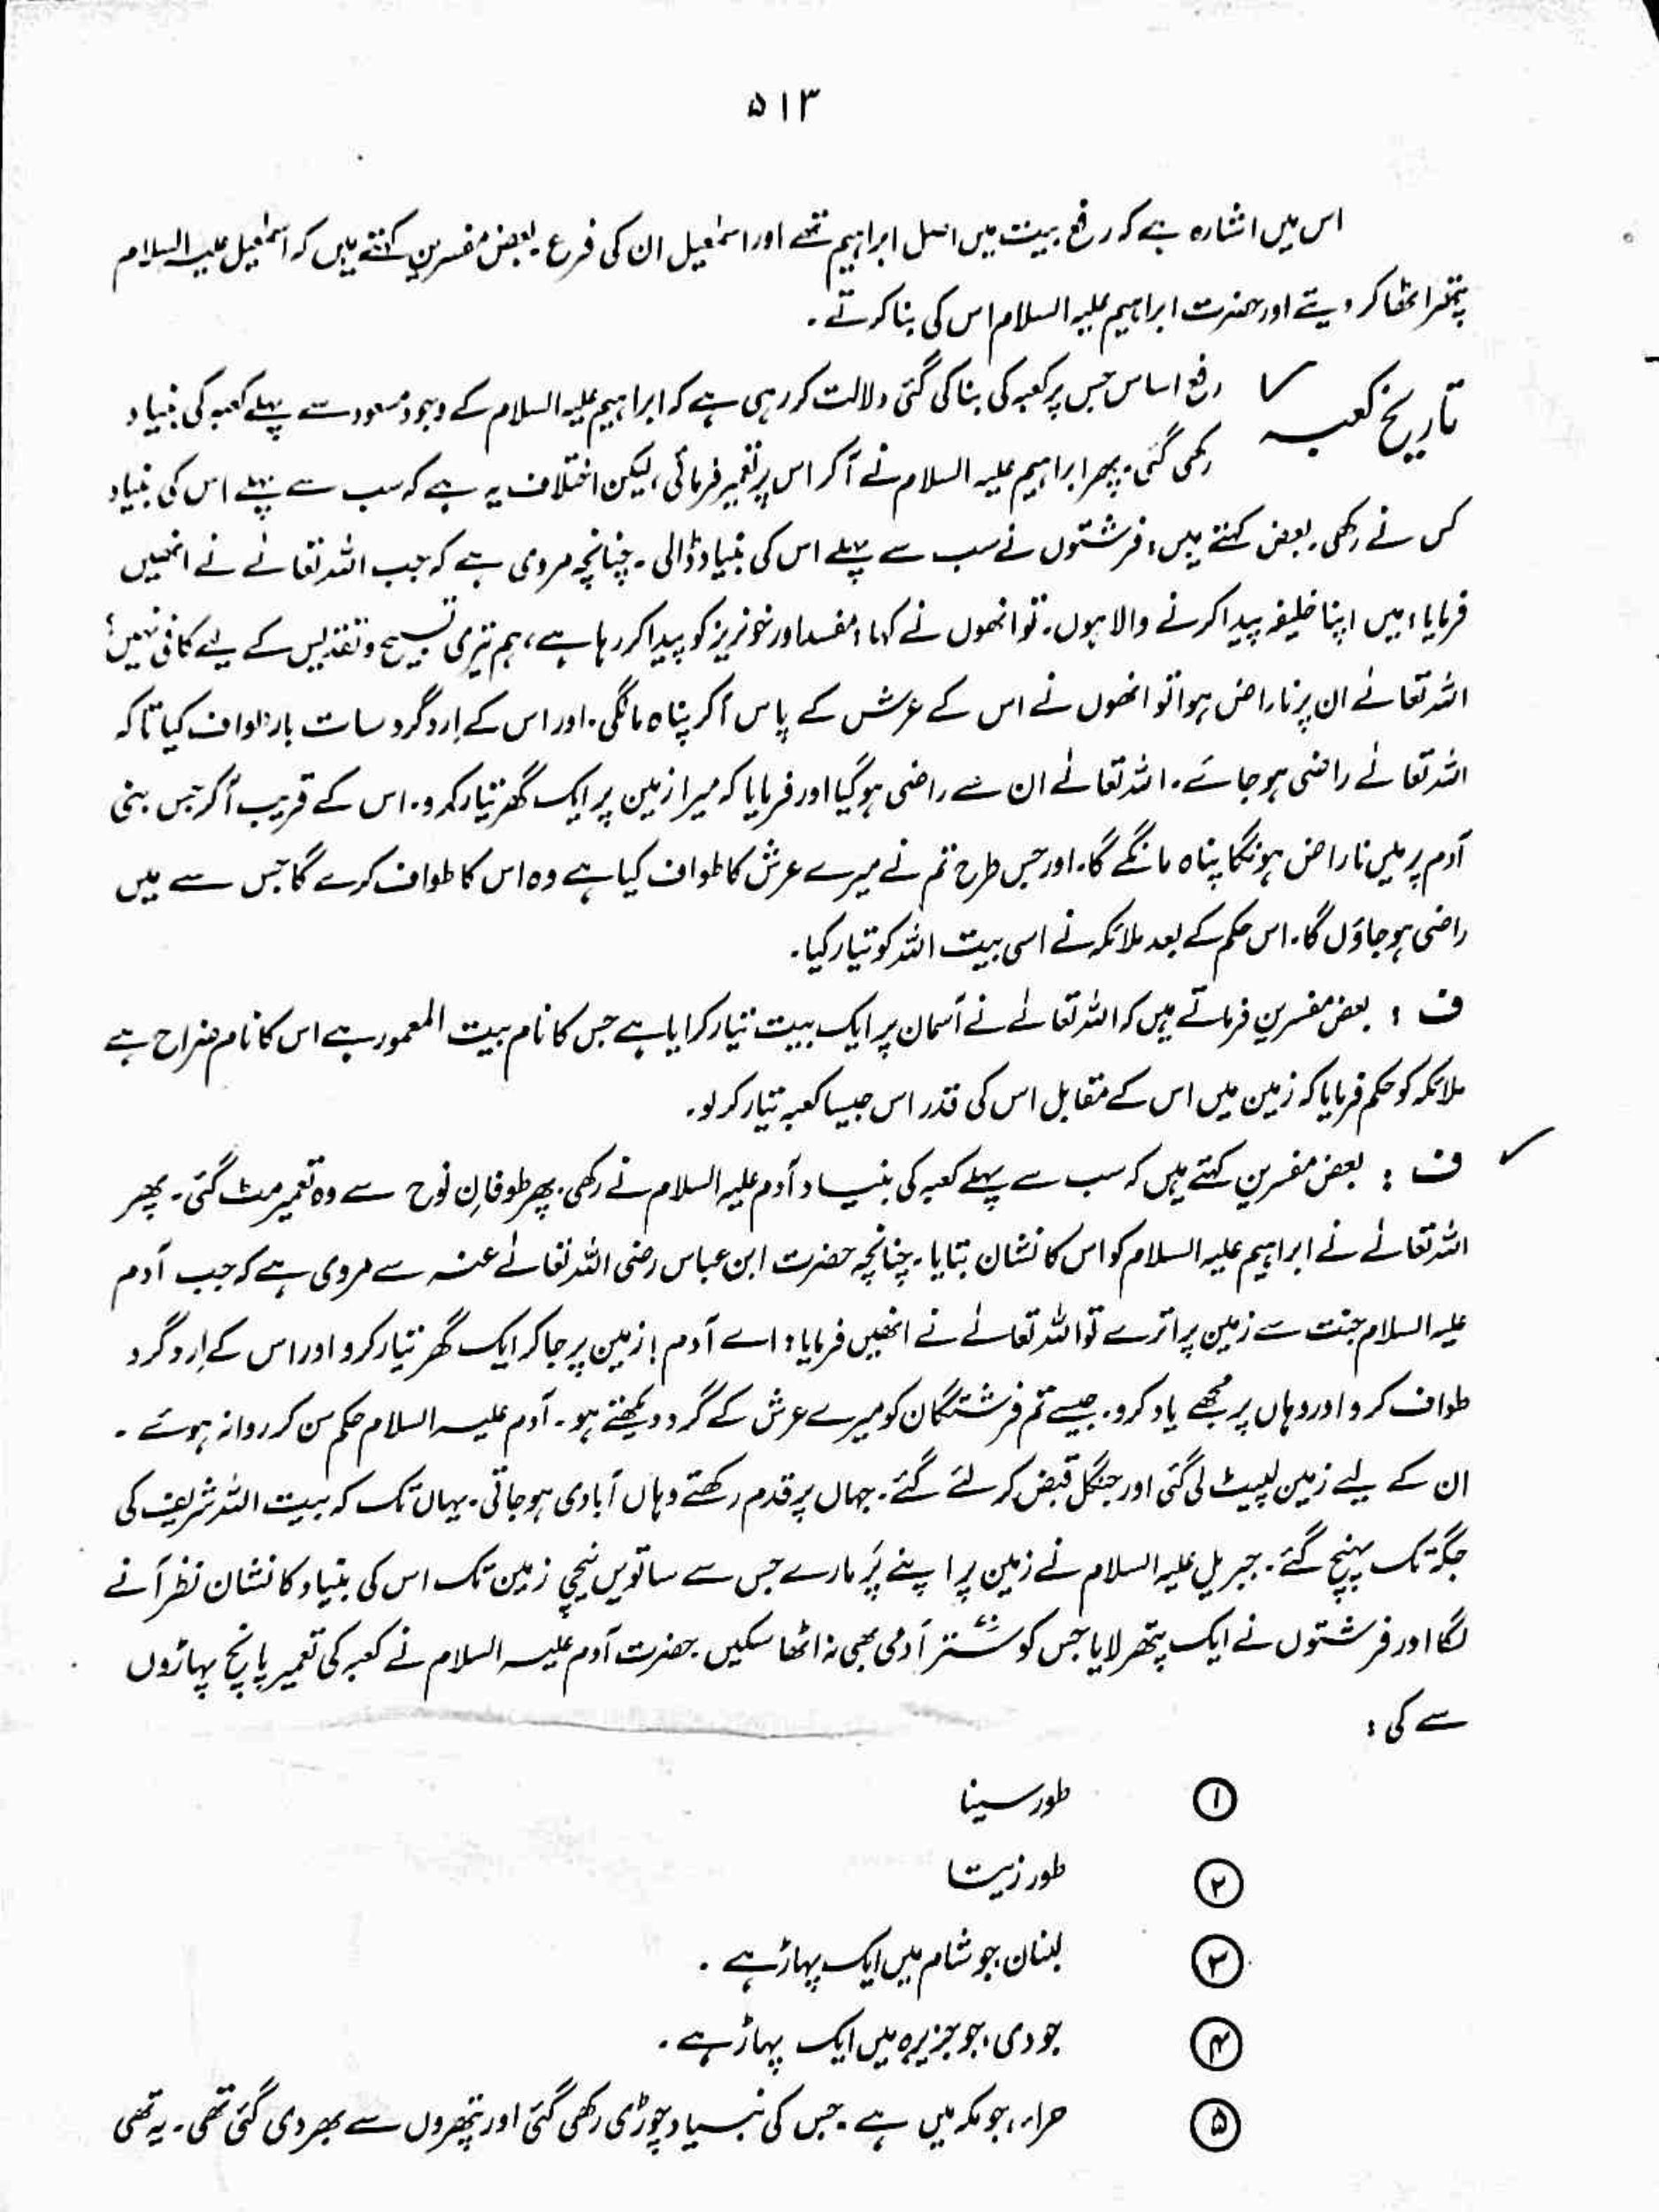 ۵۱۳
اس میں اشارہ ہے کہ رفع بیت میں اصل ابراہیم تھے اور اسمٰعیل ان کی فرع۔ بعض مفسرین کہتے ہیں کہ اسمٰعیل علیہ السلام
پتھر اٹھا کر دیتے اور حضرت ابراہیم علیہ السلام اس کی بنا کرتے۔
تاریخ کعبہ رفع اساس جس پر کعبہ کی بنا کی گئی دلالت کر رہی ہے کہ ابراہیم علیہ السلام کے وجود مسعود سے پہلے کعبہ کی بنیاد
رکھی گئی۔ پھر ابراہیم علیہ السلام نے آکر اس پر تعمیر فرمائی، لیکن اختلاف یہ ہے کہ سب سے پہلے اس کی بنیاد
کس نے رکھی۔ بعض کہتے ہیں: فرشتوں نے سب سے پہلے اس کی بنیاد ڈالی۔ چنانچہ مروی ہے کہ جب اللہ تعالےٰ نے انھیں
فرمایا: میں اپنا خلیفہ پیدا کرنے والا ہوں۔ تو انھوں نے کہا: مفسد اور خونریز کو پیدا کر رہا ہے، ہم تیری تسبیح و تقدیس کے لیے کافی نہیں؟
اللہ تعالےٰ ان پر ناراض ہوا تو انھوں نے اس کے عرش کے پاس آکر پناہ مانگی۔ اور اس کے اِرد گرد سات بار طواف کیا تاکہ
اللہ تعالےٰ راضی ہو جائے۔ اللہ تعالےٰ ان سے راضی ہو گیا اور فرمایا کہ میرا زمین پر ایک گھر تیار کرو۔ اس کے قریب آکر جس بنی
آدم پر میں ناراض ہونگا پناہ مانگے گا۔ اور جس طرح تم نے میرے عرش کا طواف کیا ہے وہ اس کا طواف کرے گا جس سے میں
راضی ہو جاؤں گا۔ اس حکم کے بعد ملائکہ نے اسی بیت اللہ کو تیار کیا۔
ف : بعض مفسرین فرماتے ہیں کہ اللہ تعالےٰ نے آسمان پر ایک بیت تیار کرایا ہے جس کا نام بیت المعمور ہے اس کا نام ضراح ہے
ملائکہ کو حکم فرمایا کہ زمین میں اس کے مقابل اس کی قدر اس جیسا کعبہ تیار کر لو۔
ف : بعض مفسرین کہتے ہیں کہ سب سے پہلے کعبہ کی بنیاد آدم علیہ السلام نے رکھی۔ پھر طوفانِ نوح سے وہ تعمیر مٹ گئی۔ پھر
اللہ تعالےٰ نے ابراہیم علیہ السلام کو اس کا نشان بتایا۔ چنانچہ حضرت ابن عباس رضی اللہ تعالےٰ عنہ سے مروی ہے کہ جب آدم
علیہ السلام جنت سے زمین پر اترے تو اللہ تعالےٰ نے انھیں فرمایا: اے آدم! زمین پر جا کر ایک گھر تیار کرو اور اس کے اِرد گرد
طواف کرو اور وہاں پر مجھے یاد کرو۔ جیسے تم فرشتگان کو میرے عرش کے گرد دیکھتے ہو۔ آدم علیہ السلام حکم سن کر روانہ ہوئے۔
ان کے لیے زمین لپیٹ لی گئی اور جنگل قبض کر لئے گئے۔ جہاں پر قدم رکھتے وہاں آبادی ہو جاتی۔ یہاں تک کہ بیت اللہ شریف کی
جگہ تک پہنچ گئے۔ جبریل علیہ السلام نے زمین پر اپنے پَر مارے جس سے ساتویں نیچی زمین تک اس کی بنیاد کا نشان نظر آنے
لگا اور فرشتوں نے ایک پتھر لایا جس کو ستر آدمی بھی نہ اٹھا سکیں۔ حضرت آدم علیہ السلام نے کعبہ کی تعمیر پانچ پہاڑوں
سے کی :
۱ طور سینا
۲ طور زیتا
۳ لبنان جو شام میں ایک پہاڑ ہے۔
۴ جودی، جو جزیرہ میں ایک پہاڑ ہے۔
۵ حراء، جو مکہ میں ہے۔ جس کی بنیاد چوڑی رکھی گئی اور پتھروں سے بھر دی گئی تھی۔ یہ تھی